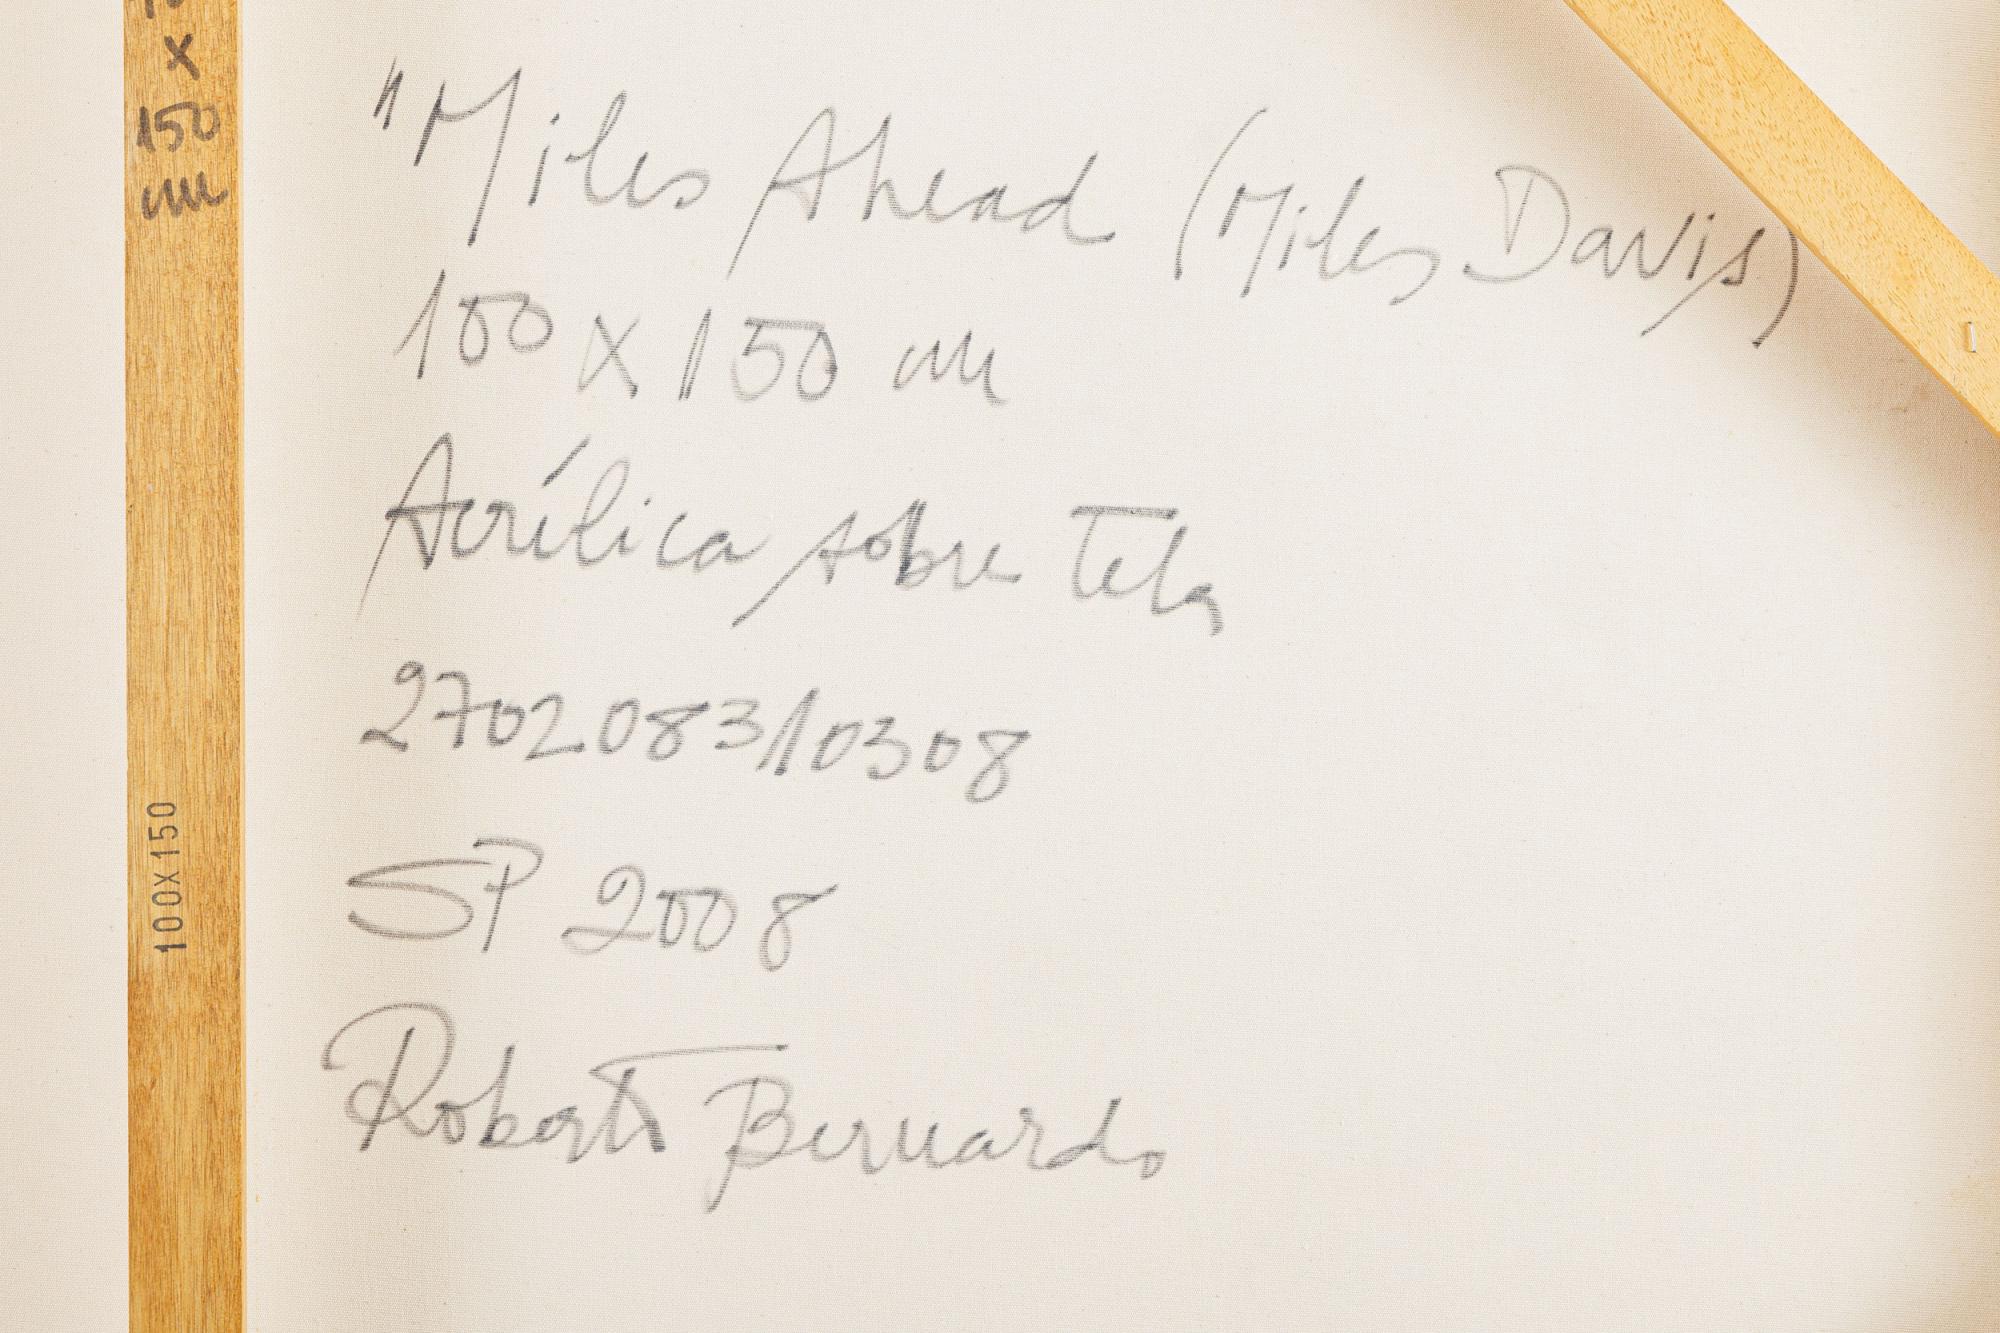 x
150
cm
100x150
"Miles Ahead (Miles Davis)
100 x 150 cm
Acrílica sobre tela
270208310308
SP 2008
Roberto Bernardo